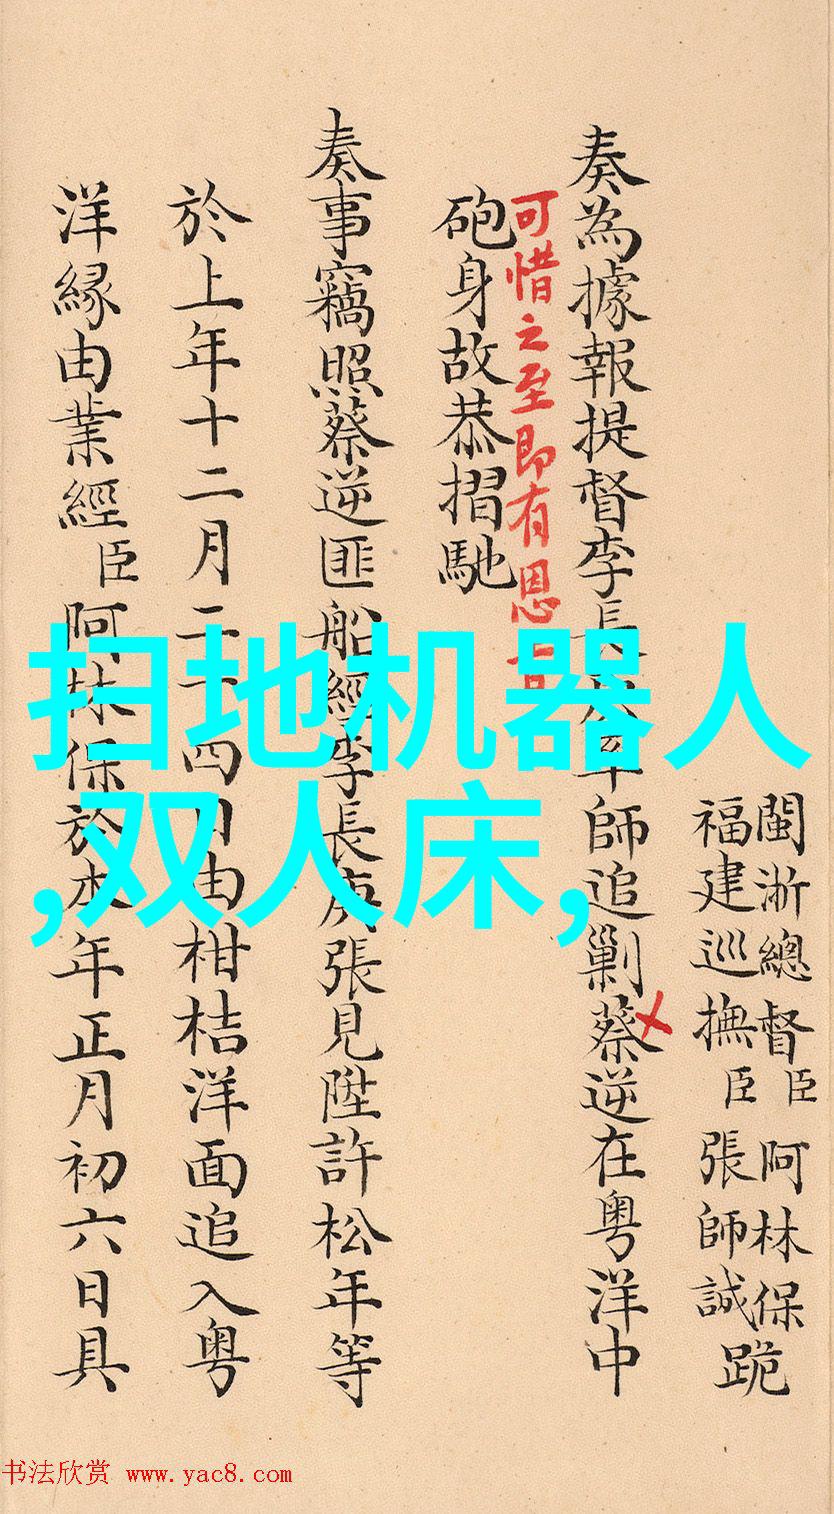 閩浙總督臣阿林保
福建巡撫臣張師誠跪
奏為據報提督李長師追剿蔡逆在粤洋中
可惜之至即有恩
砲身故恭摺馳
奏事竊照蔡逆匪船經李長庚張見陞許松年等
於上年十二月二十四日由柑桔洋面追入粤
洋縁由業經臣阿林保於本年正月初六日具
扫地机器人
,双人床,
书法欣赏 www.yac8.com